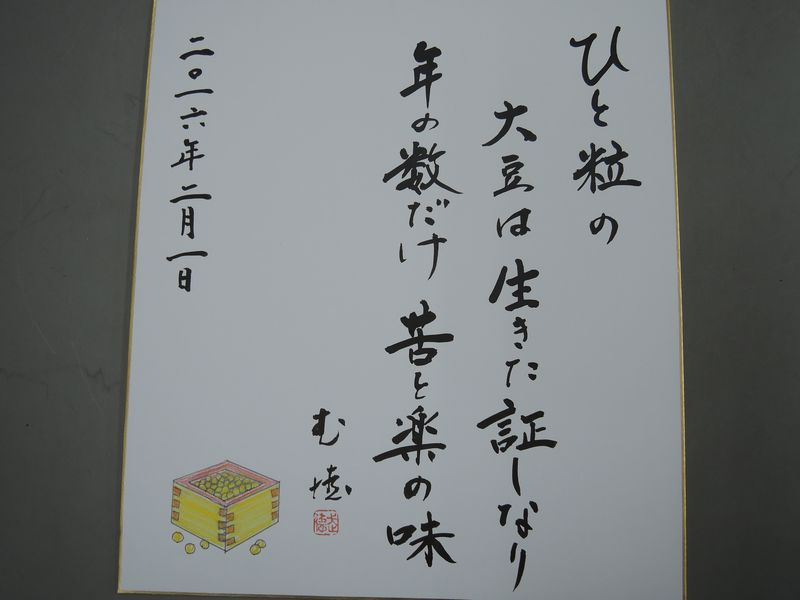 ひと粒の
大豆は生きた証しなり
年の数だけ 苦と楽の味
二〇一六年二月一日